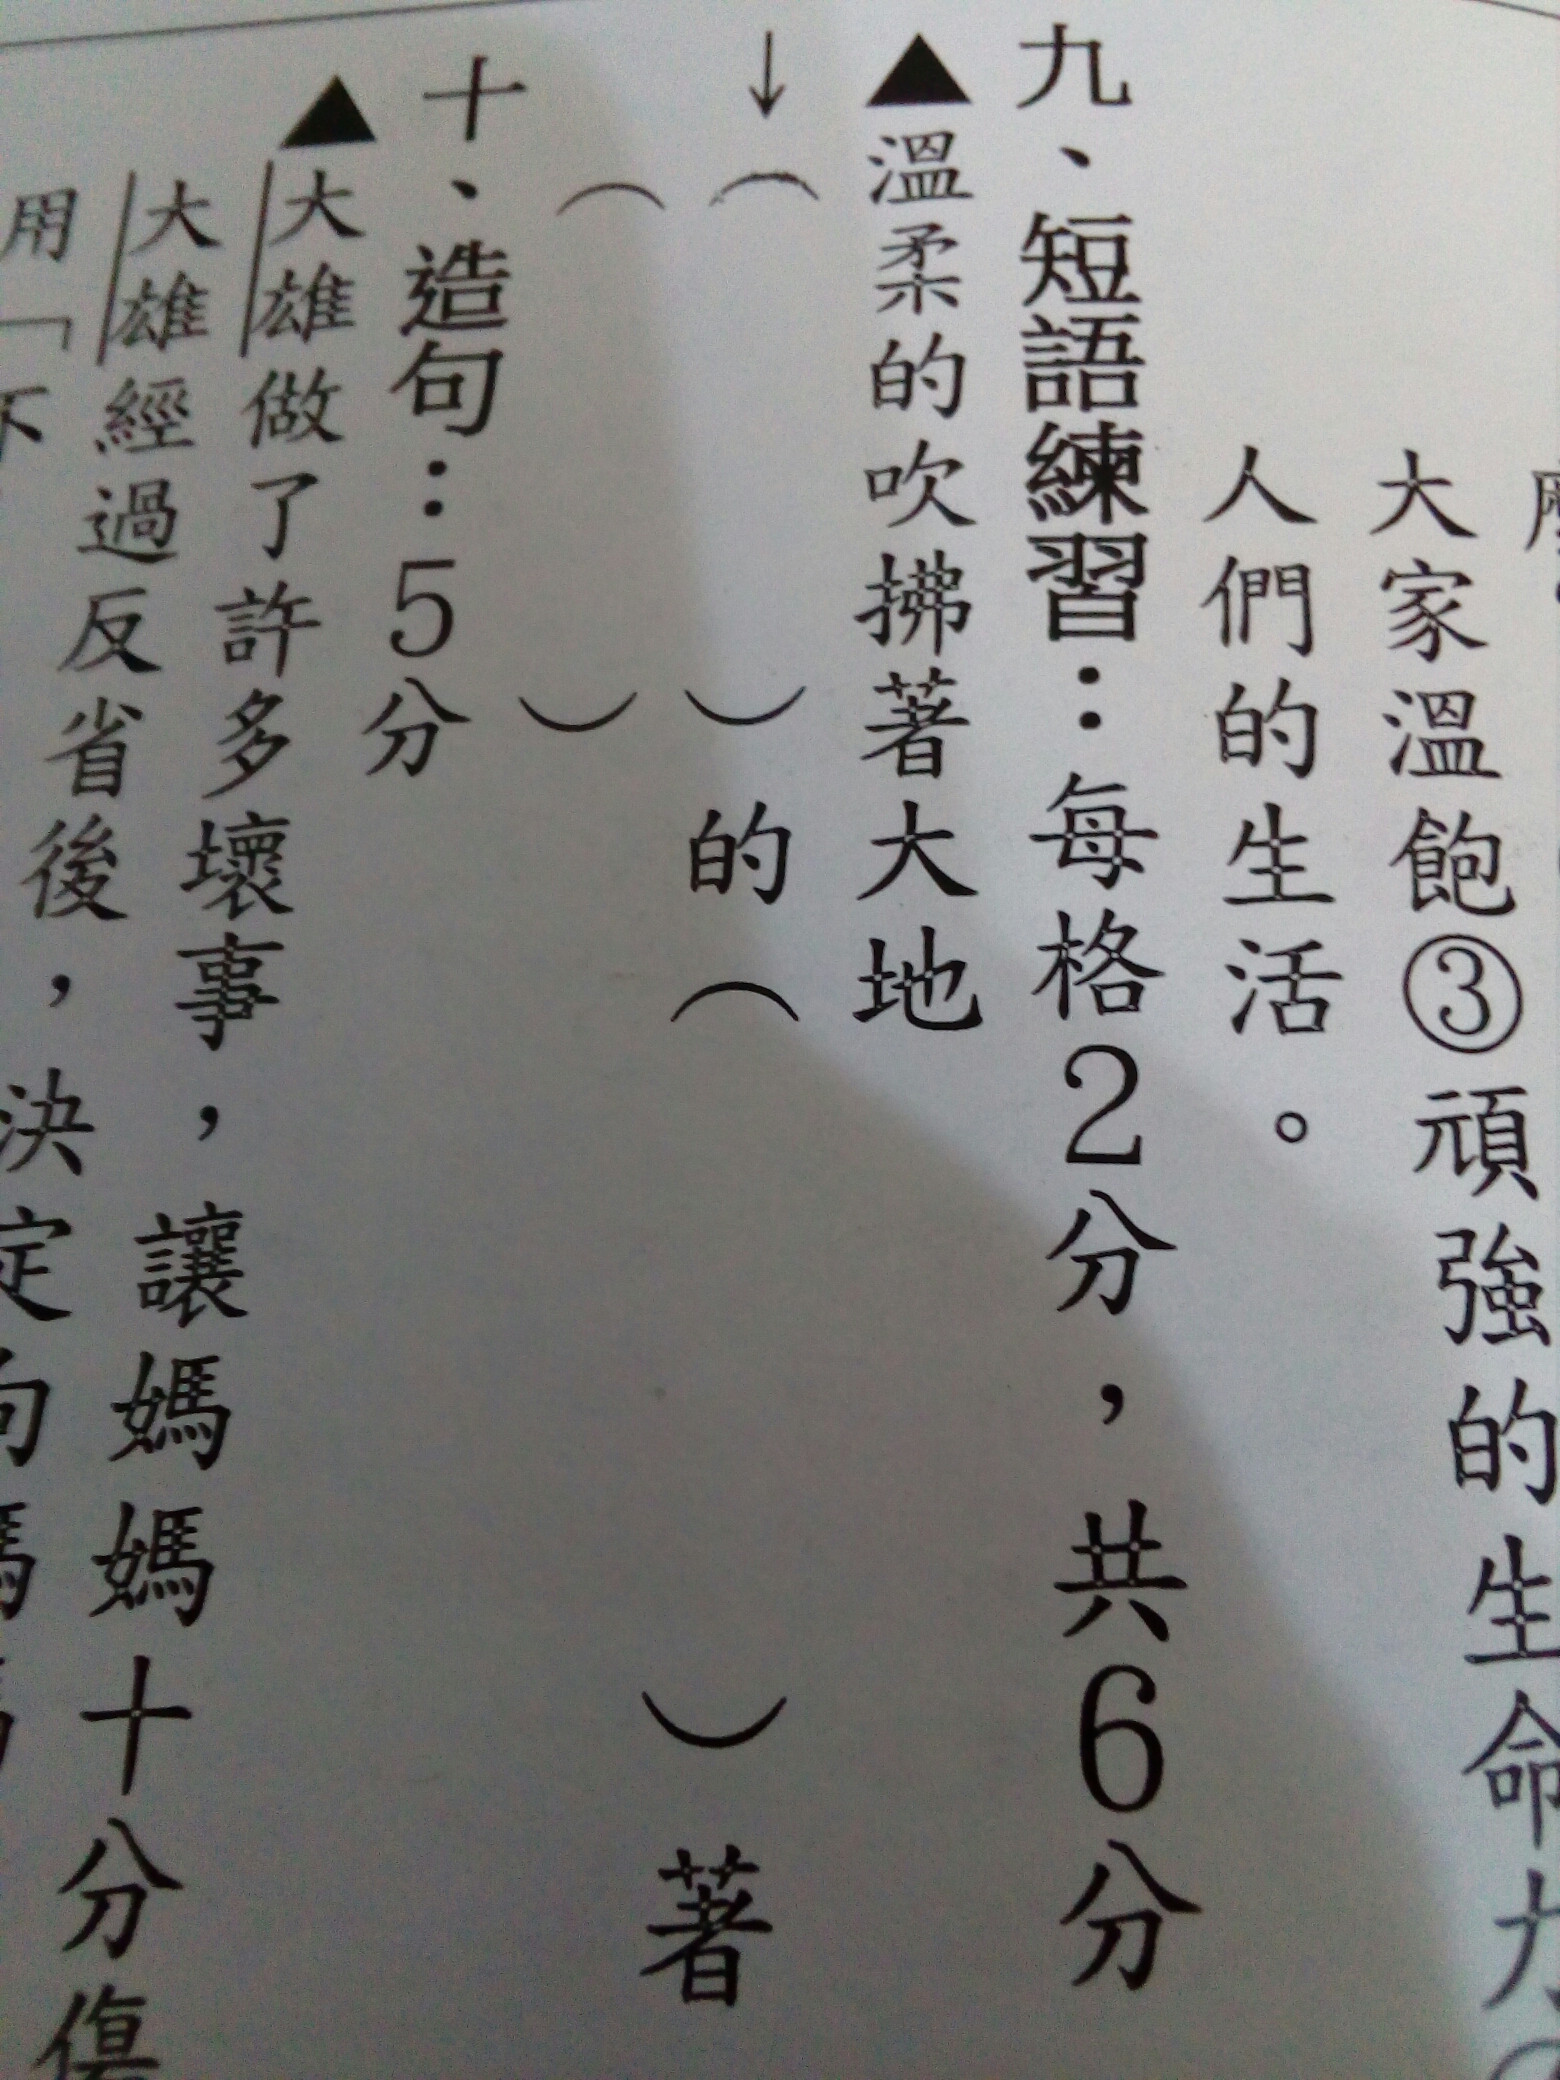 大家溫飽③頑強的生命力
人們的生活。
九、短語練習：每格2分，共6分
▲溫柔的吹拂著大地
↓（　　）的（　　）著
（　　）
十、造句：5分
▲大雄做了許多壞事，讓媽媽十分傷
大雄經過反省後，決定向媽媽
用「不